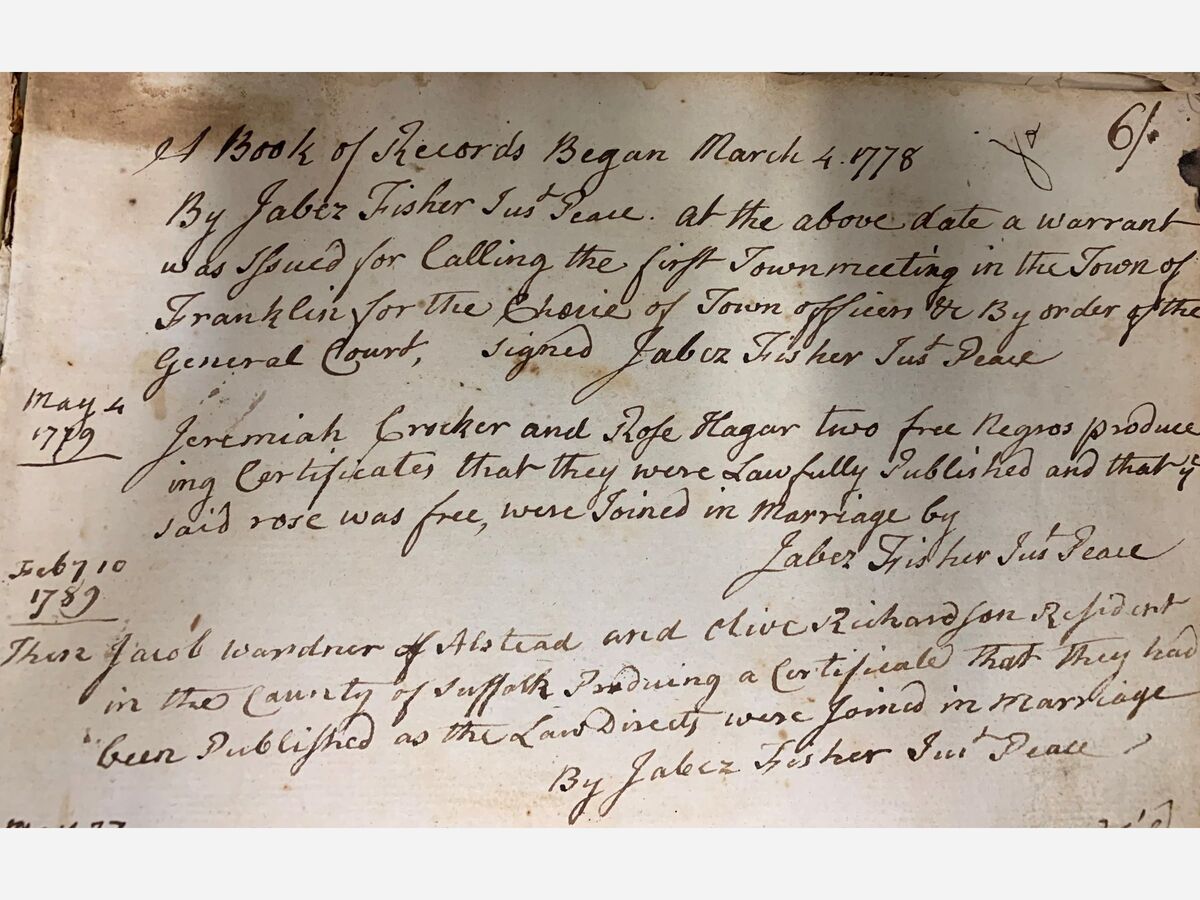 A Book of Records Began March 4. 1778
6/.
By Jabez Fisher Jus.t Peace. at the above date a warrant
was Issued for Calling the first Townmeeting in the Town of
Franklin for the Choice of Town officers &c By order of the
General Court, signed Jabez Fisher Jus.t Peace
May 4
1779
Jeremiah Crocker and Rose Hagar two free Negros produce
ing Certificates that they were Lawfully Published and that ye
said rose was free, were Joined in Marriage by
Jabez Fisher Jus.t Peace
Feby 10
1789
Then Jacob Wardner of Alstead and Olive Richardson Resident
in the County of Suffolk Produing a Certificate that they had
been Published as the Law Directs were Joined in Marriage
By Jabez Fisher Jus.t Peace